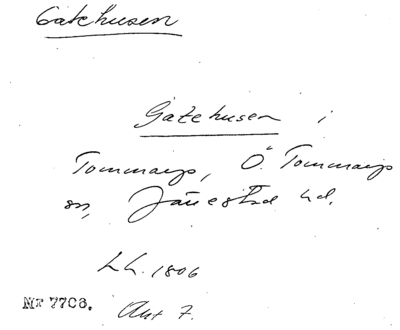 Gatehusen
Gatehusen i
Tommarp, Ö. Tommarp
sn, Järrestad hd.
LL. 1806
Nr 7706. Akt 7.